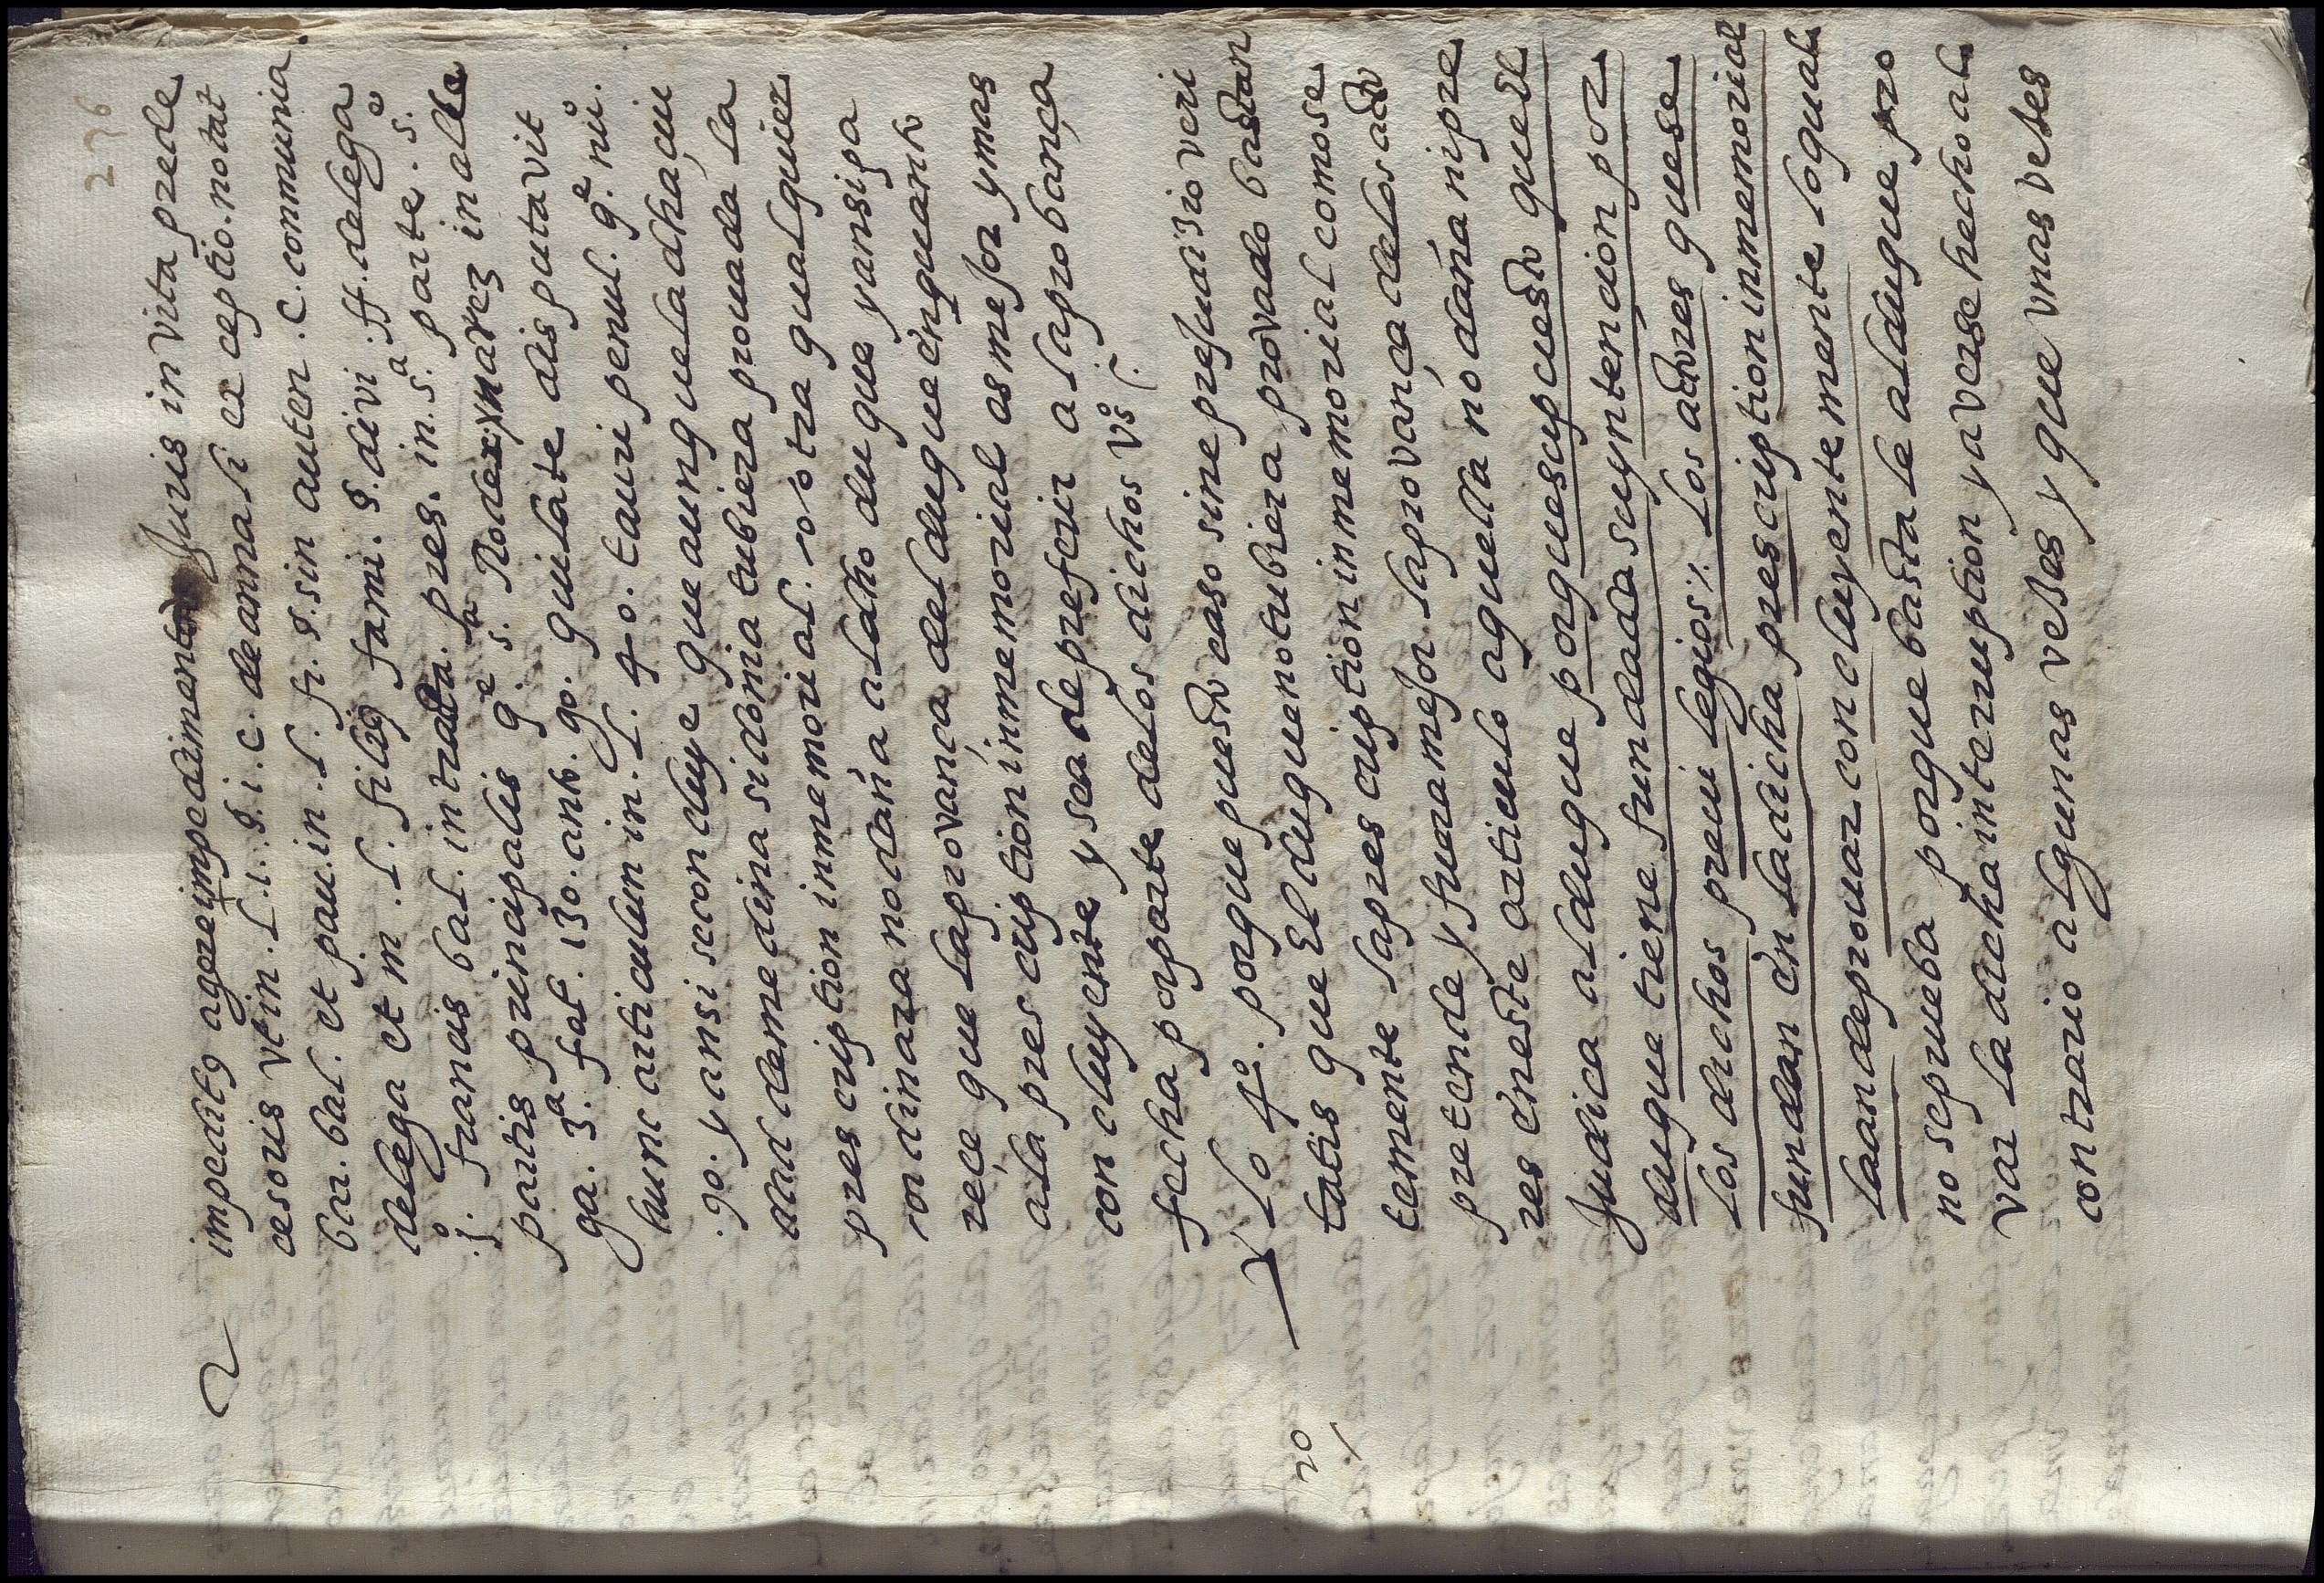 276
impeditꝯ agere impedimento Juris in vita prede
cesoris vt in. l. 1. §. i. c. de annali exceptio. notat
bar. bal. et pau. in. l. fi. §. sin auten. c. communia
delega et in. l. filiꝯ fami. §. divi. ff. delega
jº. franᶜis bal. in tracta. pres. in. 5ª parte. 5ᵉ
partis principalis qᵉ 5ª Roderi xuarez in alle
ga. 3ª fol. 130. anto. go. qui late disputavit
hunc articulum in. l. 40. tauri penul. qᵉ. nuº.
.90. y ansi se concluye que aunque la dha çiu
dad de medina sidonia tubiera prouada la
prescription inmemorial. o otra qualquier
ordinaria no daña al dho duque y ansi pa
reçe que la provança del duque en quanto
a la prescription inmemorial es mejor y mas
concluyente y sea de preferir a la probança
fecha por parte de los dichos vºs
20
y lo 4º. porque puesto caso sine prejudizio veri
tatis que El duque no tubiera provado bastan
temente la prescription inmemorial como se
pretende y fuera mejor la provança de los acto
res en este articulo aquella no daña ni pre
Judica al duque porque supuesto que El
duque tiene fundada su yntençion por
los dichos preuilegios /. Los actores que se
fundan en la dicha prescription inmemorial
la an de prouar concluyentemente lo qual
no se prueba porque basta le al duque pro
var la dicha interruption y averse hecho al
contrario algunas veses y que vnas veses